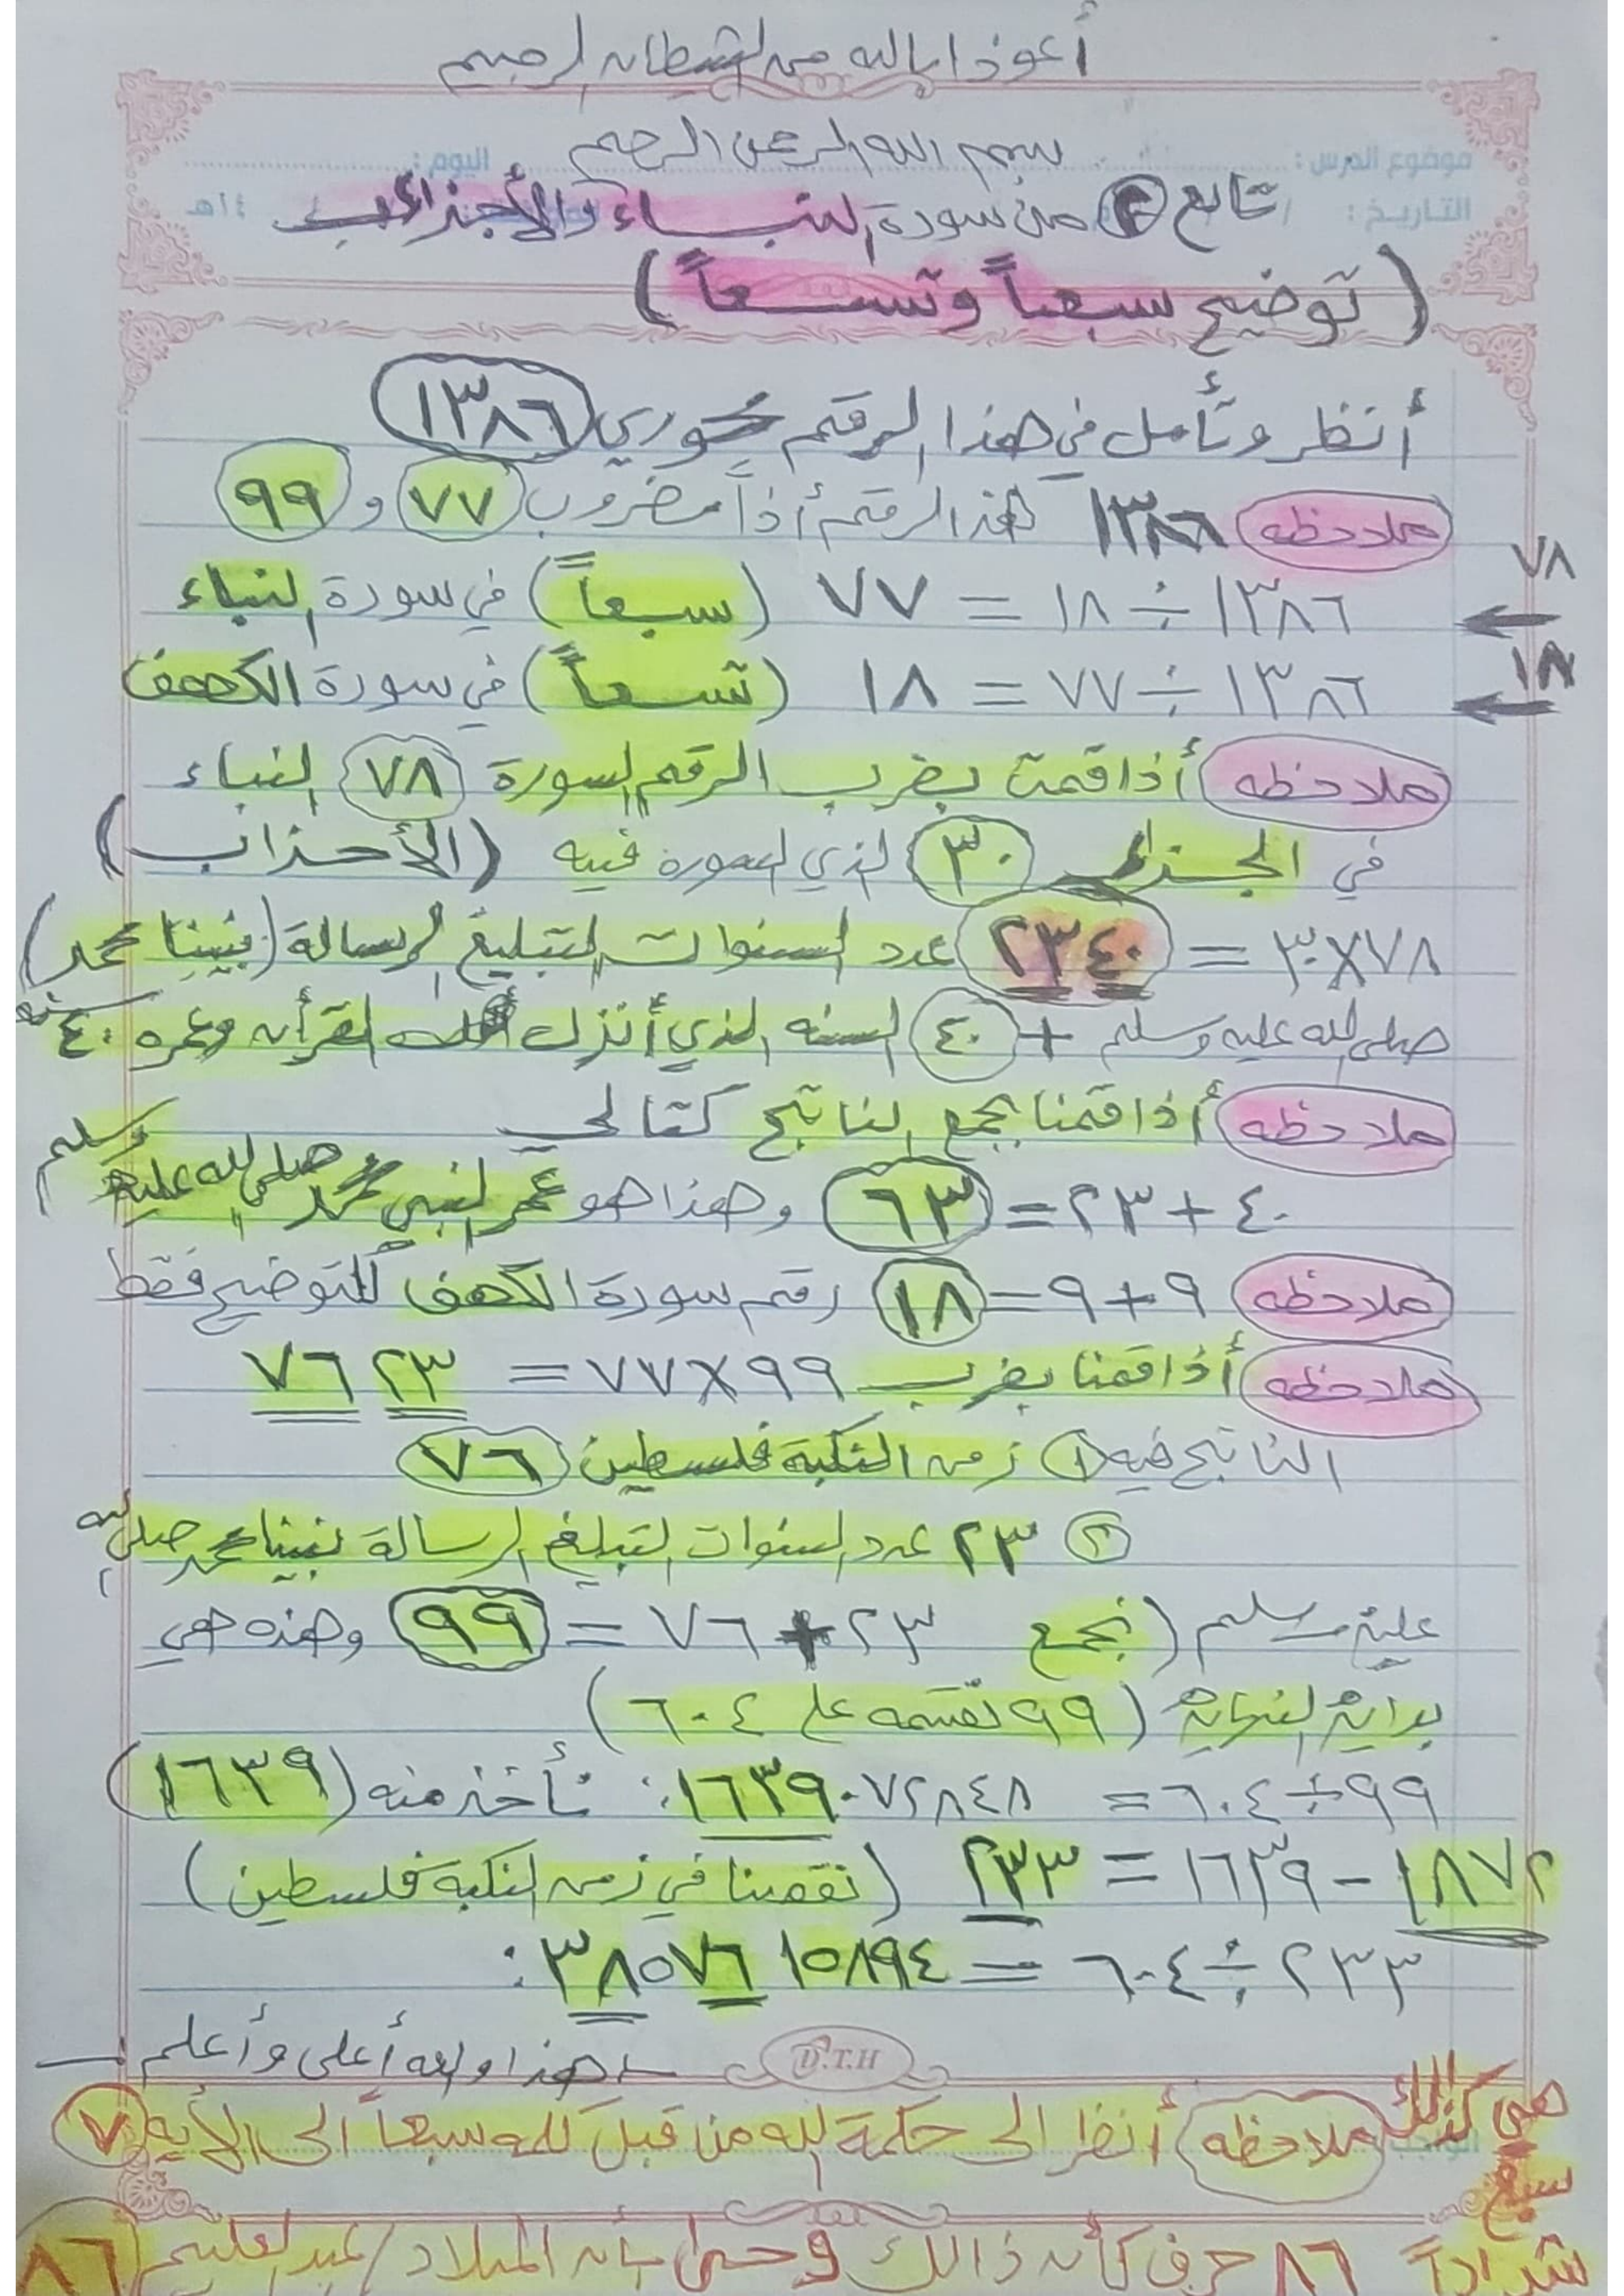 أعوذ بالله من الشيطان الرجيم
بسم الله الرحمن الرحيم
موضوع الدرس : اليوم :
التاريخ : / ١٤هـ
تابع ٢ من سورة النباء والأجزاء
(توضيح سبعاً وتسعاً)
أنظر وتأمل في هذا الرقم محوري ١٣٨٦
ملاحظه ١٣٨٦ هذا الرقم أذاً مضروب ٧٧ و ٩٩
٧٨
١٣٨٦ ÷ ١٨ = ٧٧ (سبعاً) في سورة النباء
١٨
١٣٨٦ ÷ ٧٧ = ١٨ (تسعاً) في سورة الكهف
ملاحظه أذا قمت بضرب الرقم السورة ٧٨ النباء
في الجزء ٣٠ الذي السورة فيه (الأحزاب)
٧٨ × ٣٠ = ٢٣٤٠ عدد السنوات لتبليغ الرسالة (نبينا محمد)
صلى الله عليه وسلم + ٤٠ السنه الذي أنزل القرأن وعمره ٤٠ سنه
ملاحظه أذا قمنا بجمع الناتج كتالي
٤٠ + ٢٣ = ٦٣ وهذا هو عمر النبي محمد صلى الله عليه وسلم
ملاحظه ٩ + ٩ = ١٨ رقم سورة الكهف للتوضيح فقط
ملاحظه أذا قمنا بضرب ٩٩ × ٧٧ = ٧٦ ٢٣
الناتج فيه ١ زمن النكبة فلسطين ٧٦
٢ ٢٣ عدد السنوات لتبليغ الرسالة نبينا محمد صلى الله
عليه وسلم (نجمع ٢٣ + ٧٦ = ٩٩ وهذه هي
بداية النهاية (٩٩ نقسمه على ٦٠٤)
٩٩ ÷ ٦٠٤ = ١٦٣٩٠٧٢٨٤٨, نأخذ منه (١٦٣٩)
١٨٧٢ - ١٦٣٩ = ٢٣٣ (نقصنا في زمن النكبة فلسطين)
٢٣٣ ÷ ٦٠٤ = ٣٨٥٧٦١٥٨٩٤,
هذا والله أعلى وأعلم
D.T.H
الواجب
ملاحظه أنظر الى حكمة الله من قبل كلمه سبعاً الى الأيه ٧
هي كذالك سبع
شداداً ٨٦ حرف كأنه ذالك وحتى بأنه الميلاد / عبدالعليم ٨٦